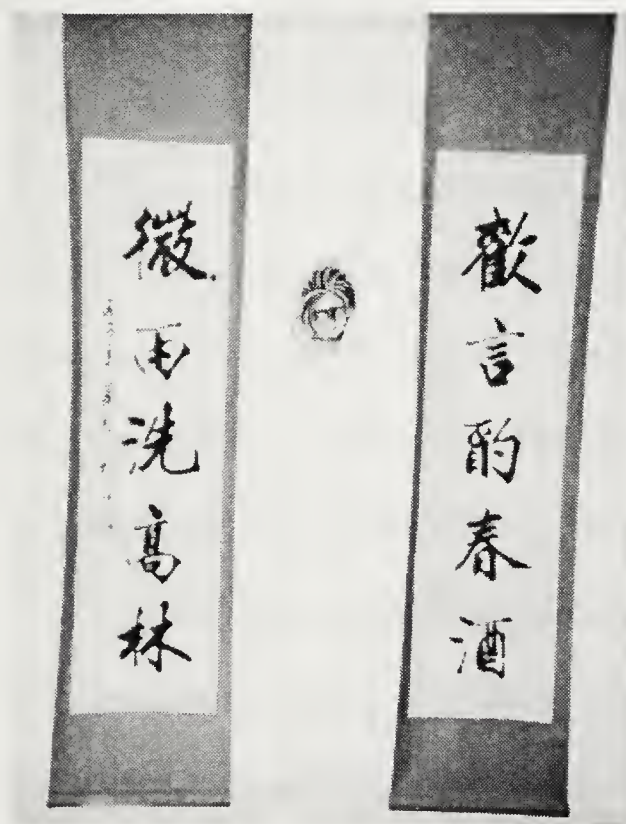 歡言酌春酒
微雨洗高林